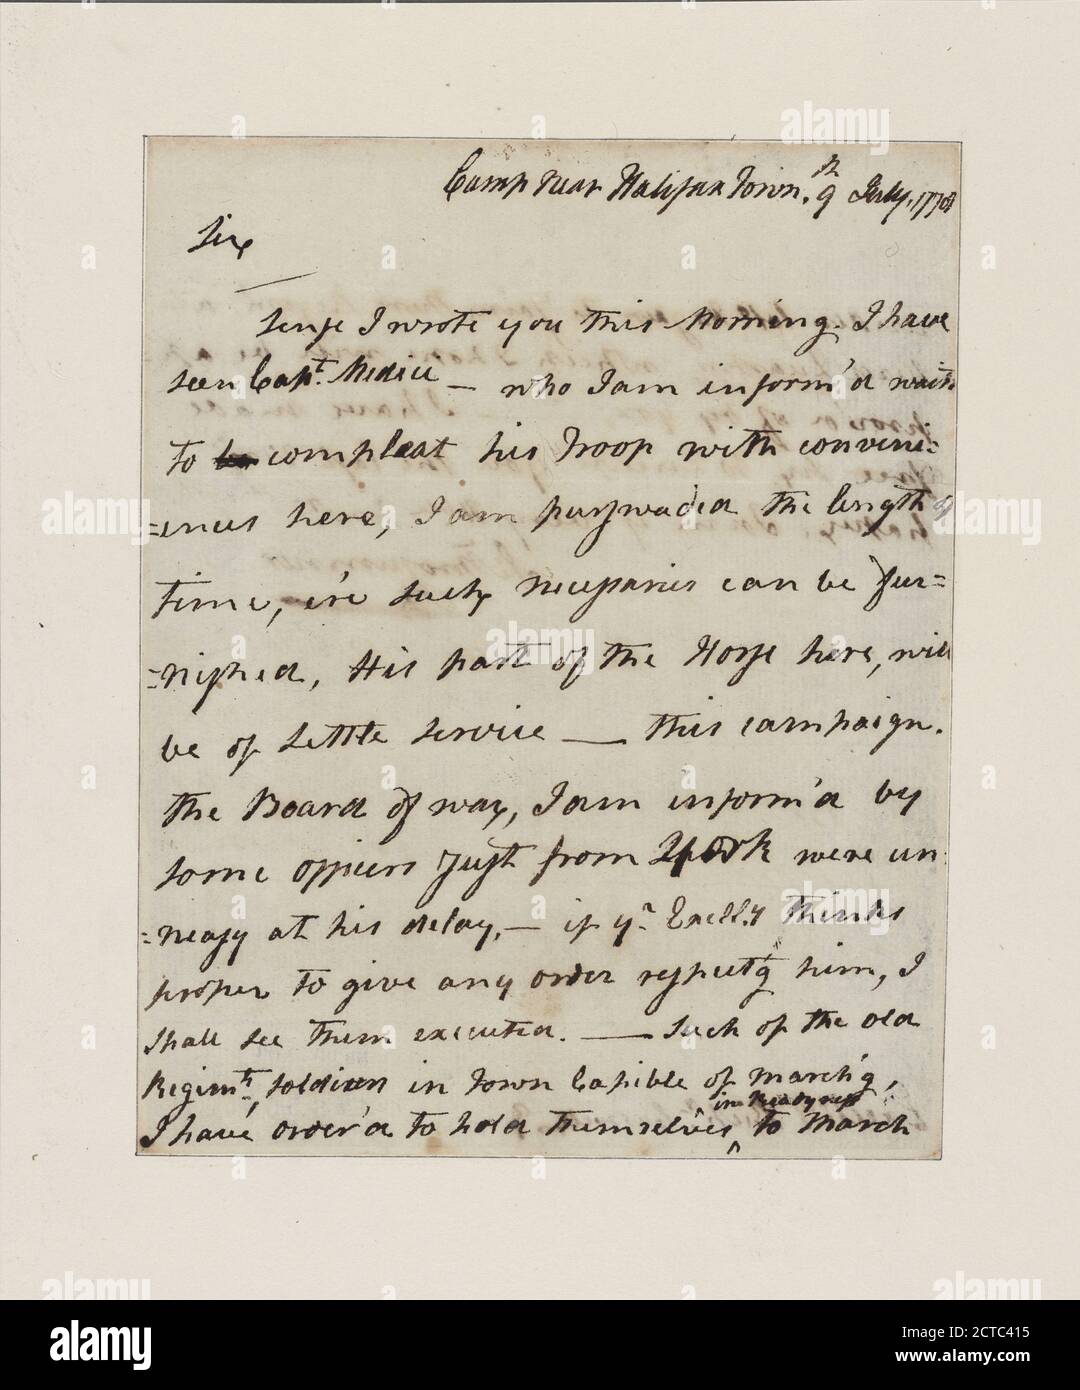 Camp near Halifax Town. 9th July, 1778
Sir
Sense I wrote you this Morning. I have
seen Capt. Medici — who I am inform'd waits
to be compleat his Troop with conveni=
=ences here, I am perswaded the length of
time, e're such necessaries can be fur=
=nished, His part of the Horse here, will
be of Little service — this campaign.
the Board of war, I am inform'd by
some officers Just from York were un
=neasy at his delay, — if yr. Excell.y thinks
proper to give any order respectg him, I
shall see them executed. — Such of the old
Regimt. soldiers in Town Capible of march'g,
in Readyness
I have order'd to hold themselves ^ to March
alamy
Image ID: 2CTC415
www.alamy.com